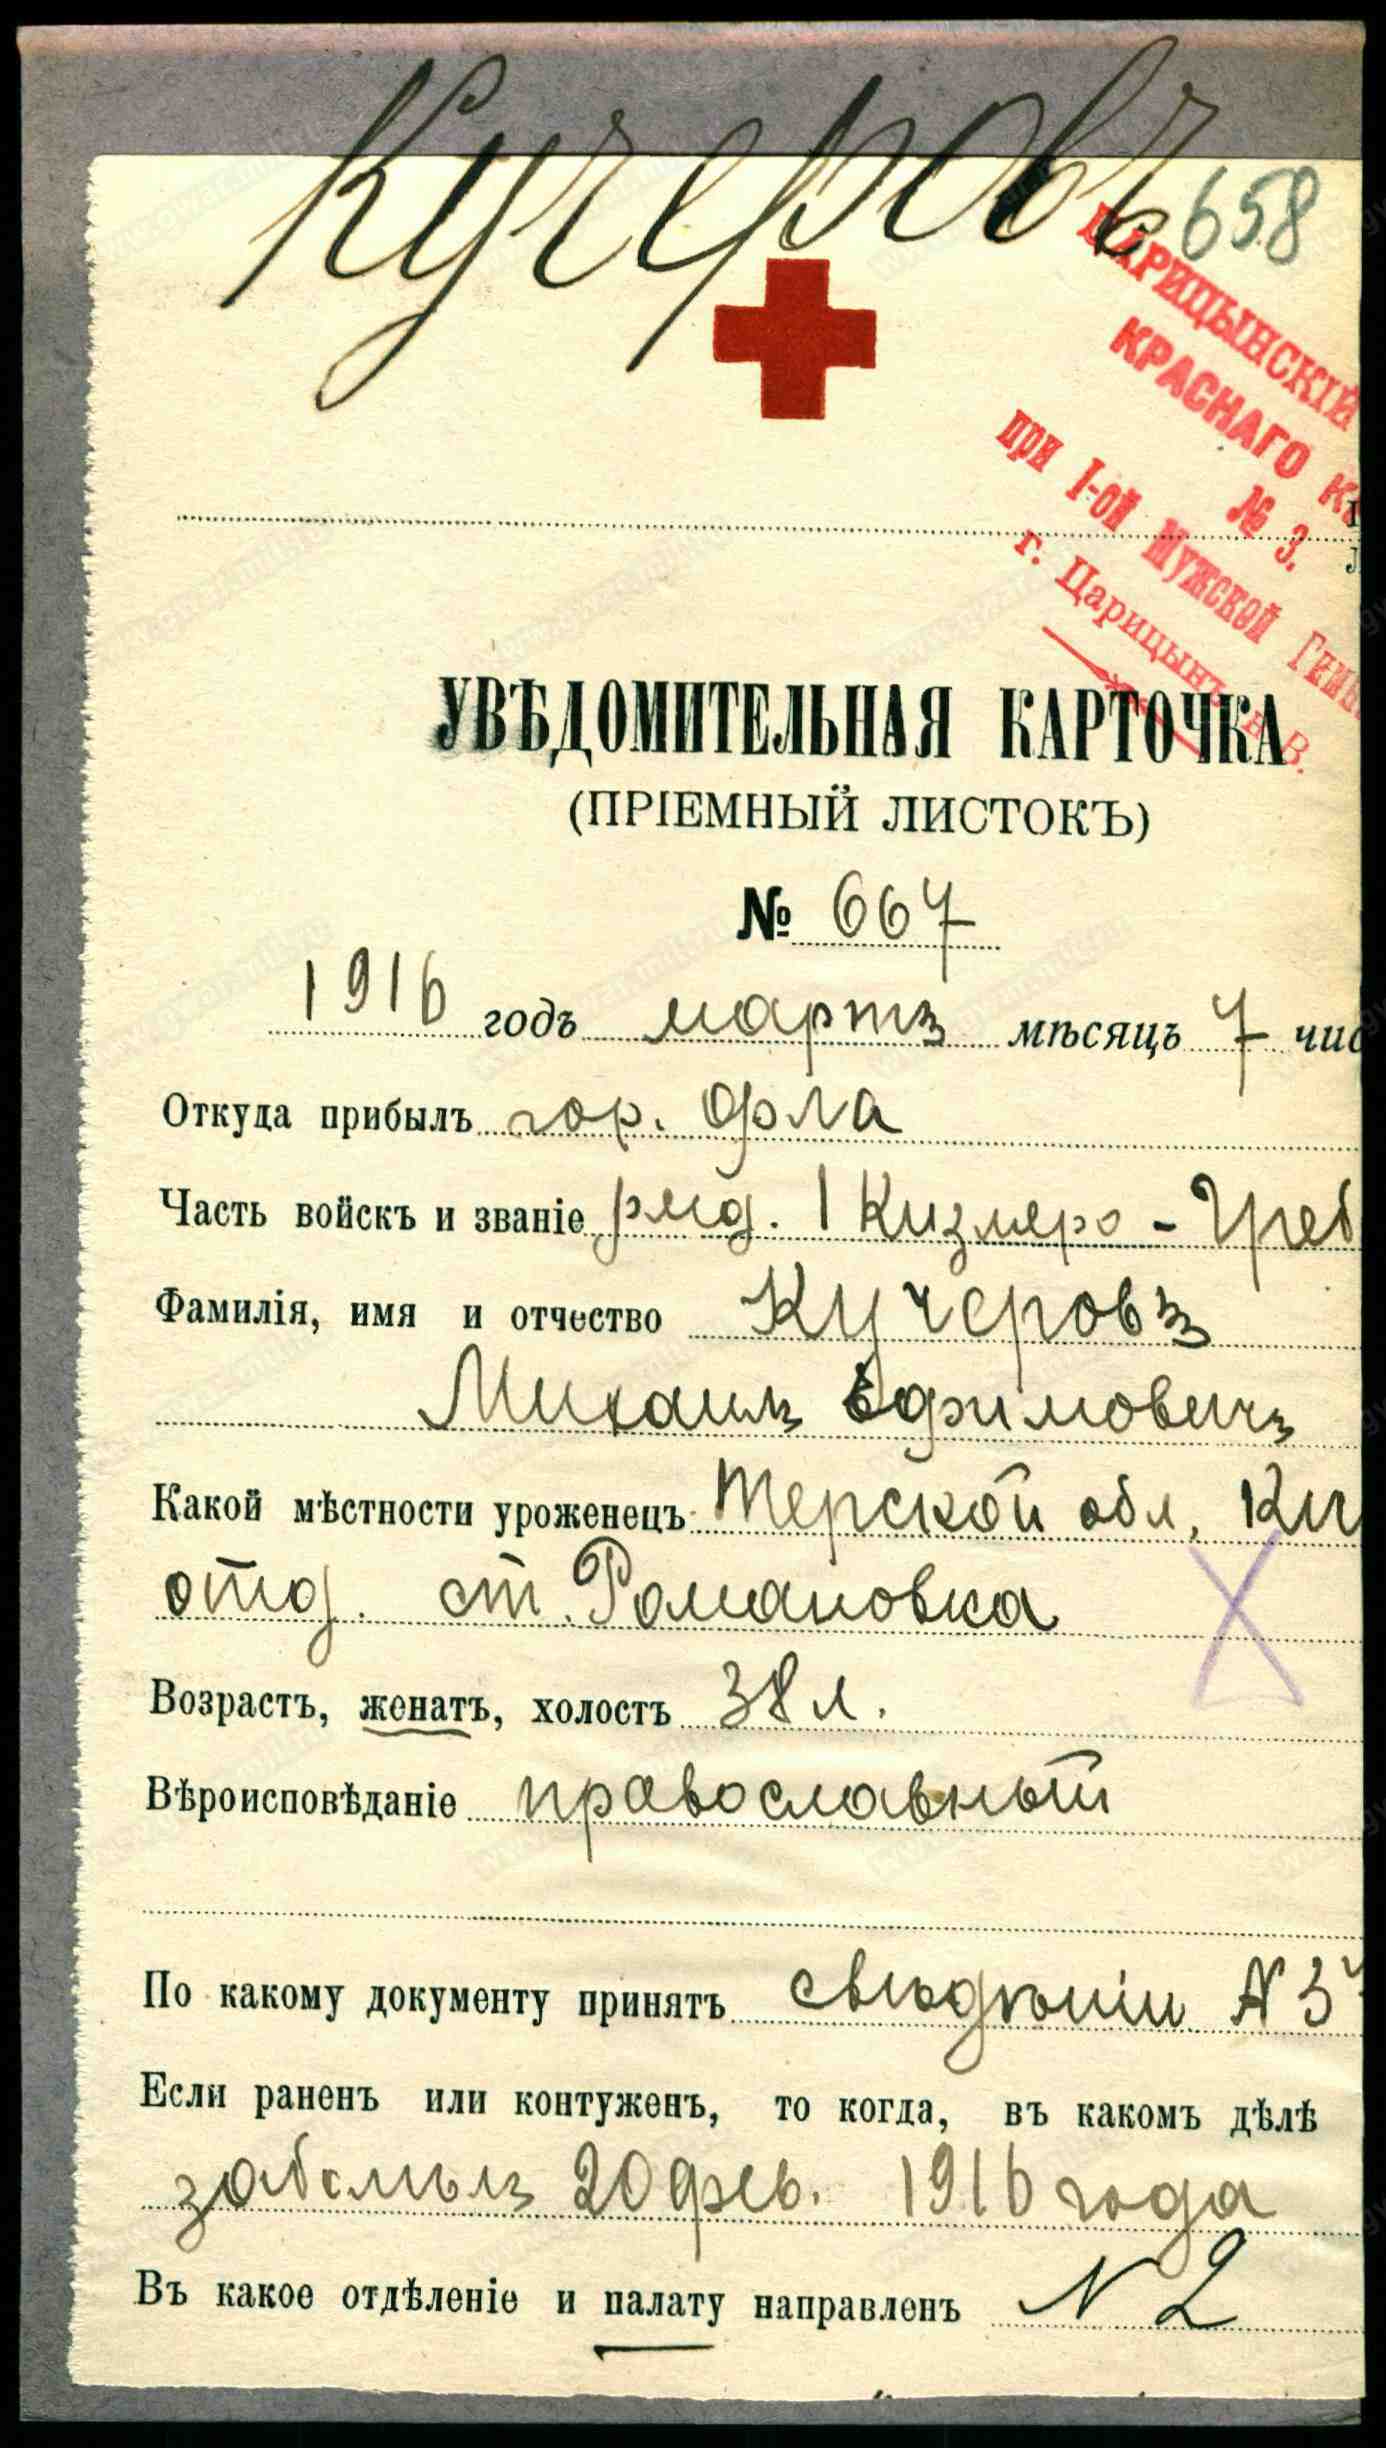 Кучеровъ
658
ЦАРИЦЫНСКІЙ
КРАСНАГО
№ 3.
при 1-ой Мужской
г. Царицынъ н. В.
УВѢДОМИТЕЛЬНАЯ КАРТОЧКА
(ПРІЕМНЫЙ ЛИСТОКЪ)
№ 667
1916 годъ мартъ мѣсяцъ 7 чис
Откуда прибылъ гор. Орла
Часть войскъ и званіе ряд. 1 Кизляро-Греб
Фамилія, имя и отчество Кучеровъ
Михаилъ Ефимовичъ
Какой мѣстности уроженецъ Терской обл. Ки
отд. ст. Романовка
Возрастъ, женатъ, холостъ 38 л.
Вѣроисповѣданіе православный
По какому документу принятъ свѣдѣніи N 3
Если раненъ или контуженъ, то когда, въ какомъ дѣлѣ
заболѣлъ 20 фев. 1916 года
Въ какое отдѣленіе и палату направленъ N 2